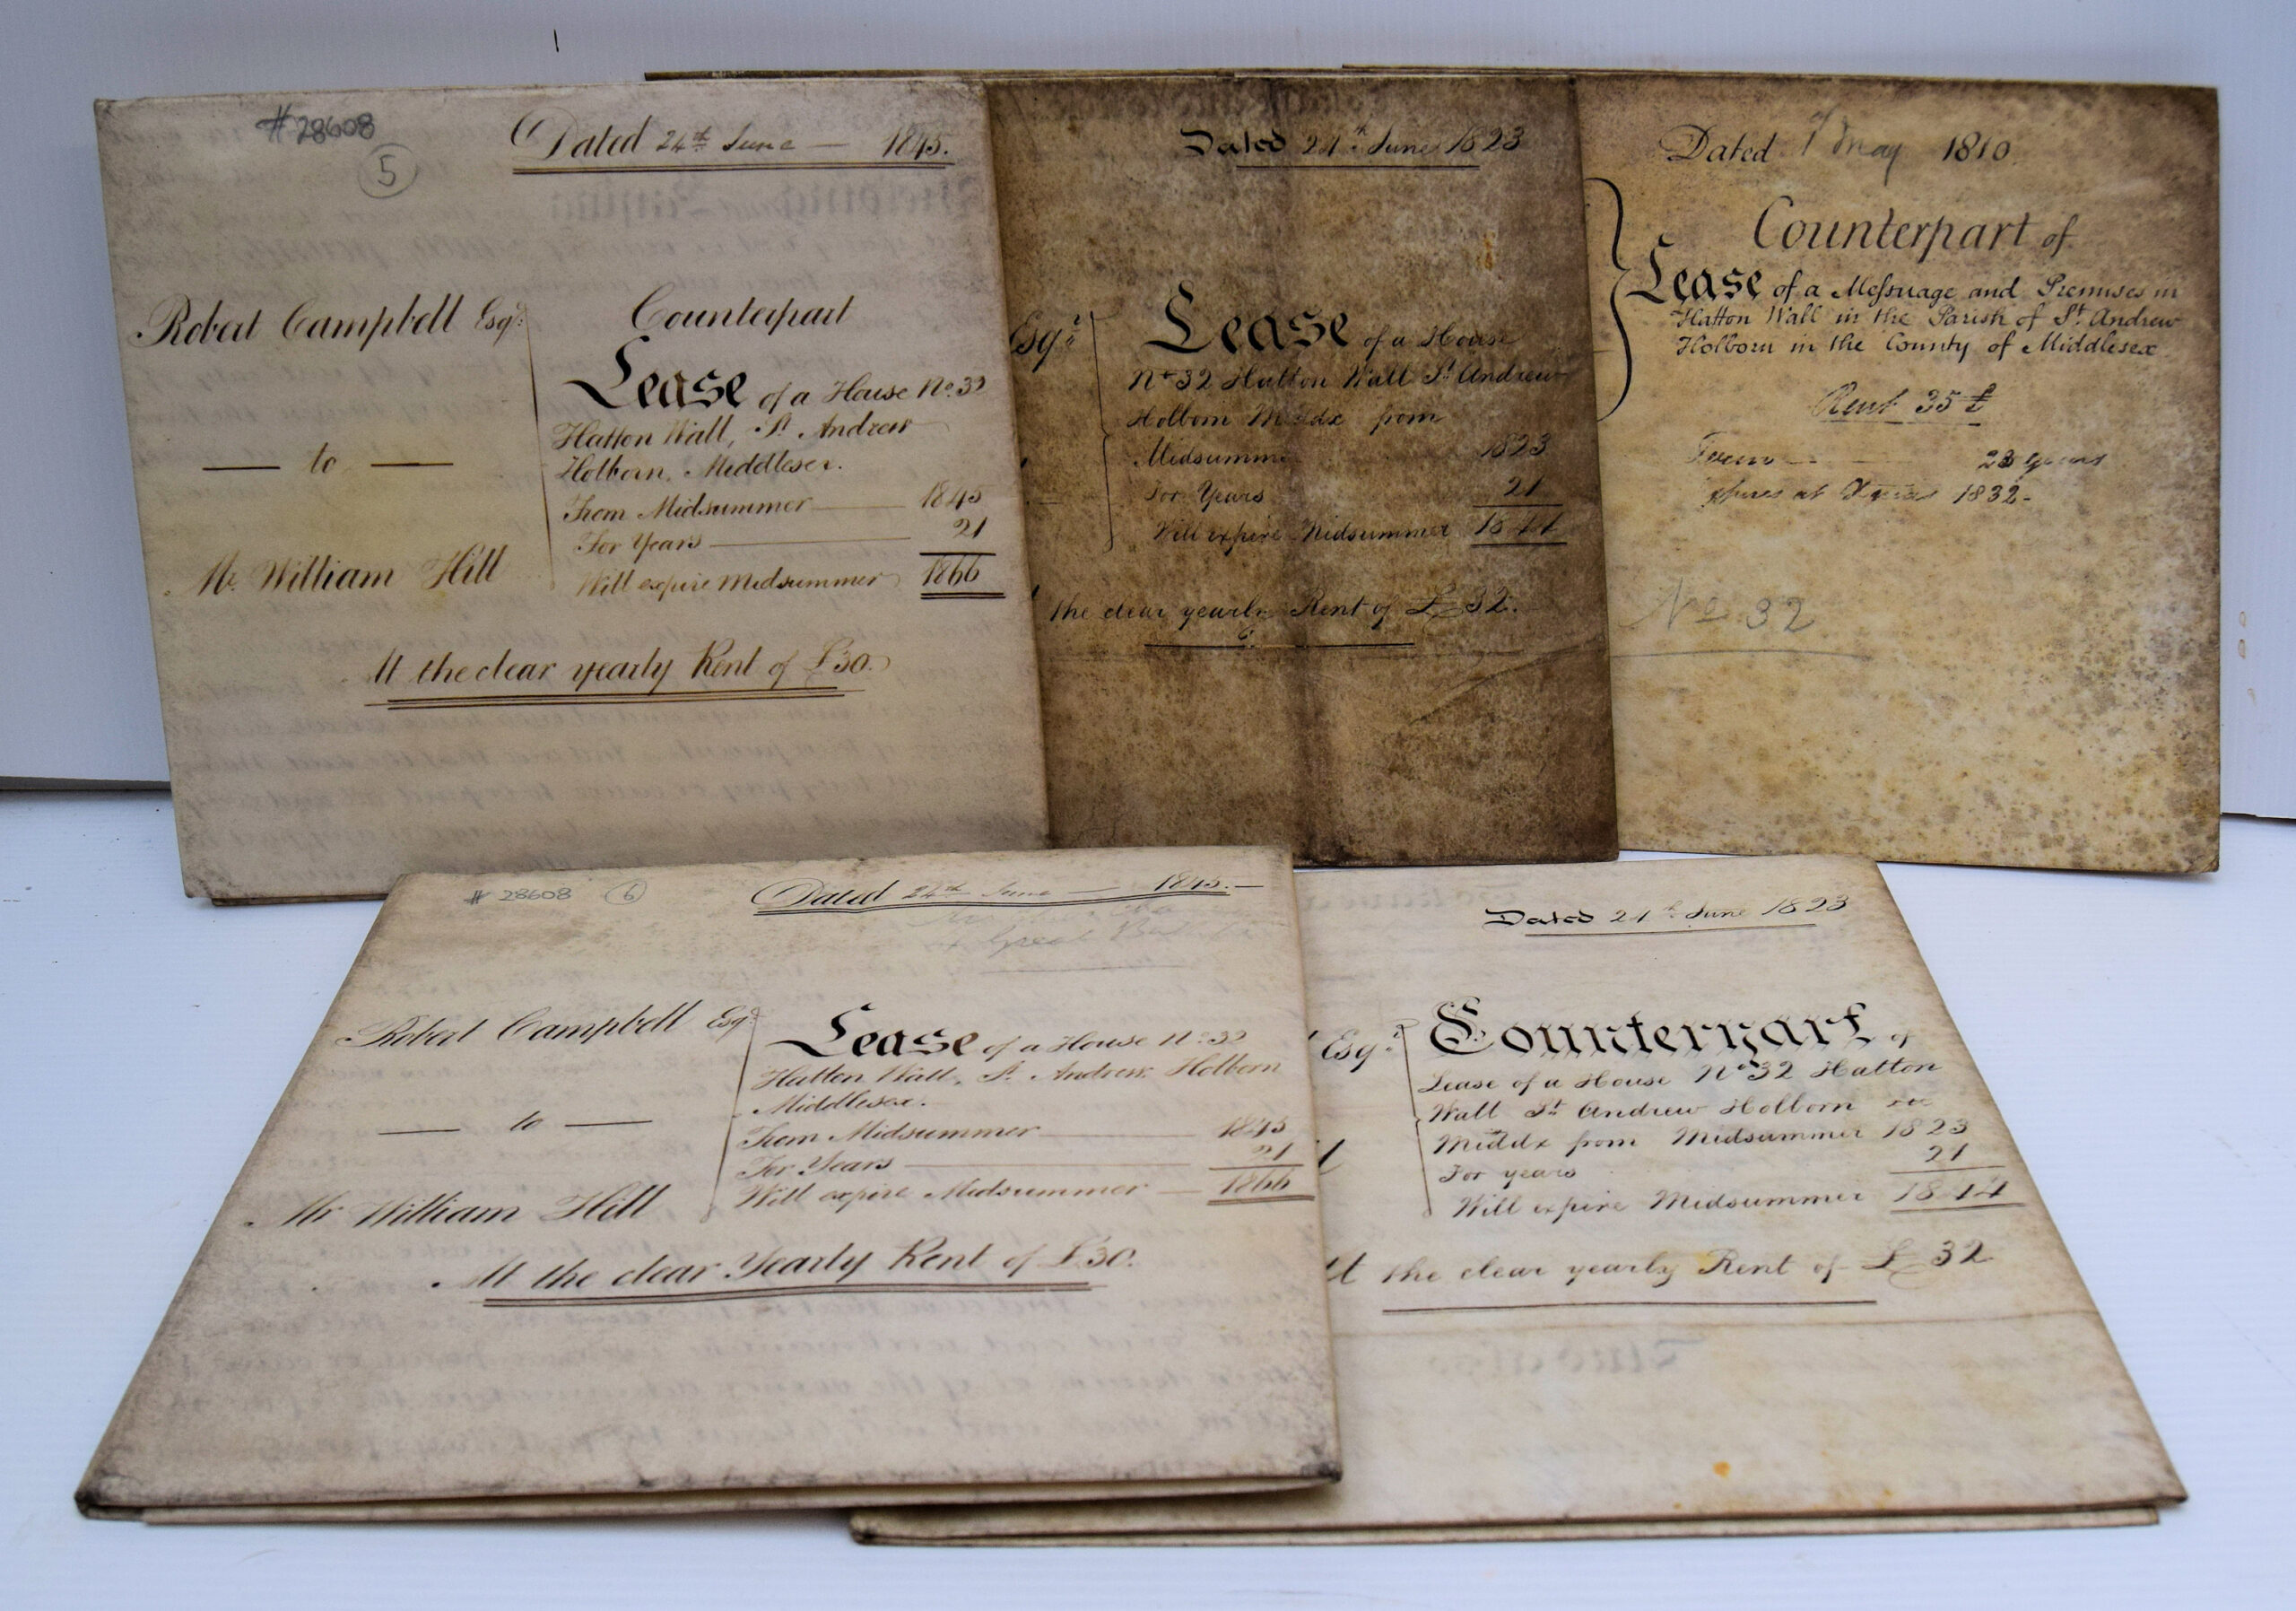 #28608
5
Dated 24th June — 1845.
Robert Campbell Esqr.
— to —
Mr. William Hill
Counterpart
Lease of a House No. 32
Hatton Wall, St. Andrew
Holborn, Middlesex.
From Midsummer — 1845
For Years — 21
Will expire Midsummer 1866
At the clear yearly Rent of £30.
Dated 24th June 1823
Esqr.
Lease of a House
No 32 Hatton Wall St Andrew
Holborn Middx from
Midsummer 1823
For Years 21
Will expire Midsummer 1844
the clear yearly Rent of £32.
Dated May 1810
Counterpart of
Lease of a Messuage and Premises in
Hatton Wall in the Parish of St. Andrew
Holborn in the County of Middlesex
Rent 35£
Term — 23 years
expires at 1832-
No 32
#28608 6
Dated 24th June — 1845.—
Great
Robert Campbell Esqr.
— to —
Mr William Hill
Lease of a House No. 32
Hatton Wall, St. Andrew Holborn
Middlesex.
From Midsummer — 1845
For Years — 21
Will expire Midsummer — 1866
At the clear Yearly Rent of £30.
Dated 24th June 1823
Esqr.
Counterpart of
Lease of a House No 32 Hatton
Wall St Andrew Holborn
Middx from Midsummer 1823
For years 21
Will expire Midsummer 1844
At the clear yearly Rent of £32